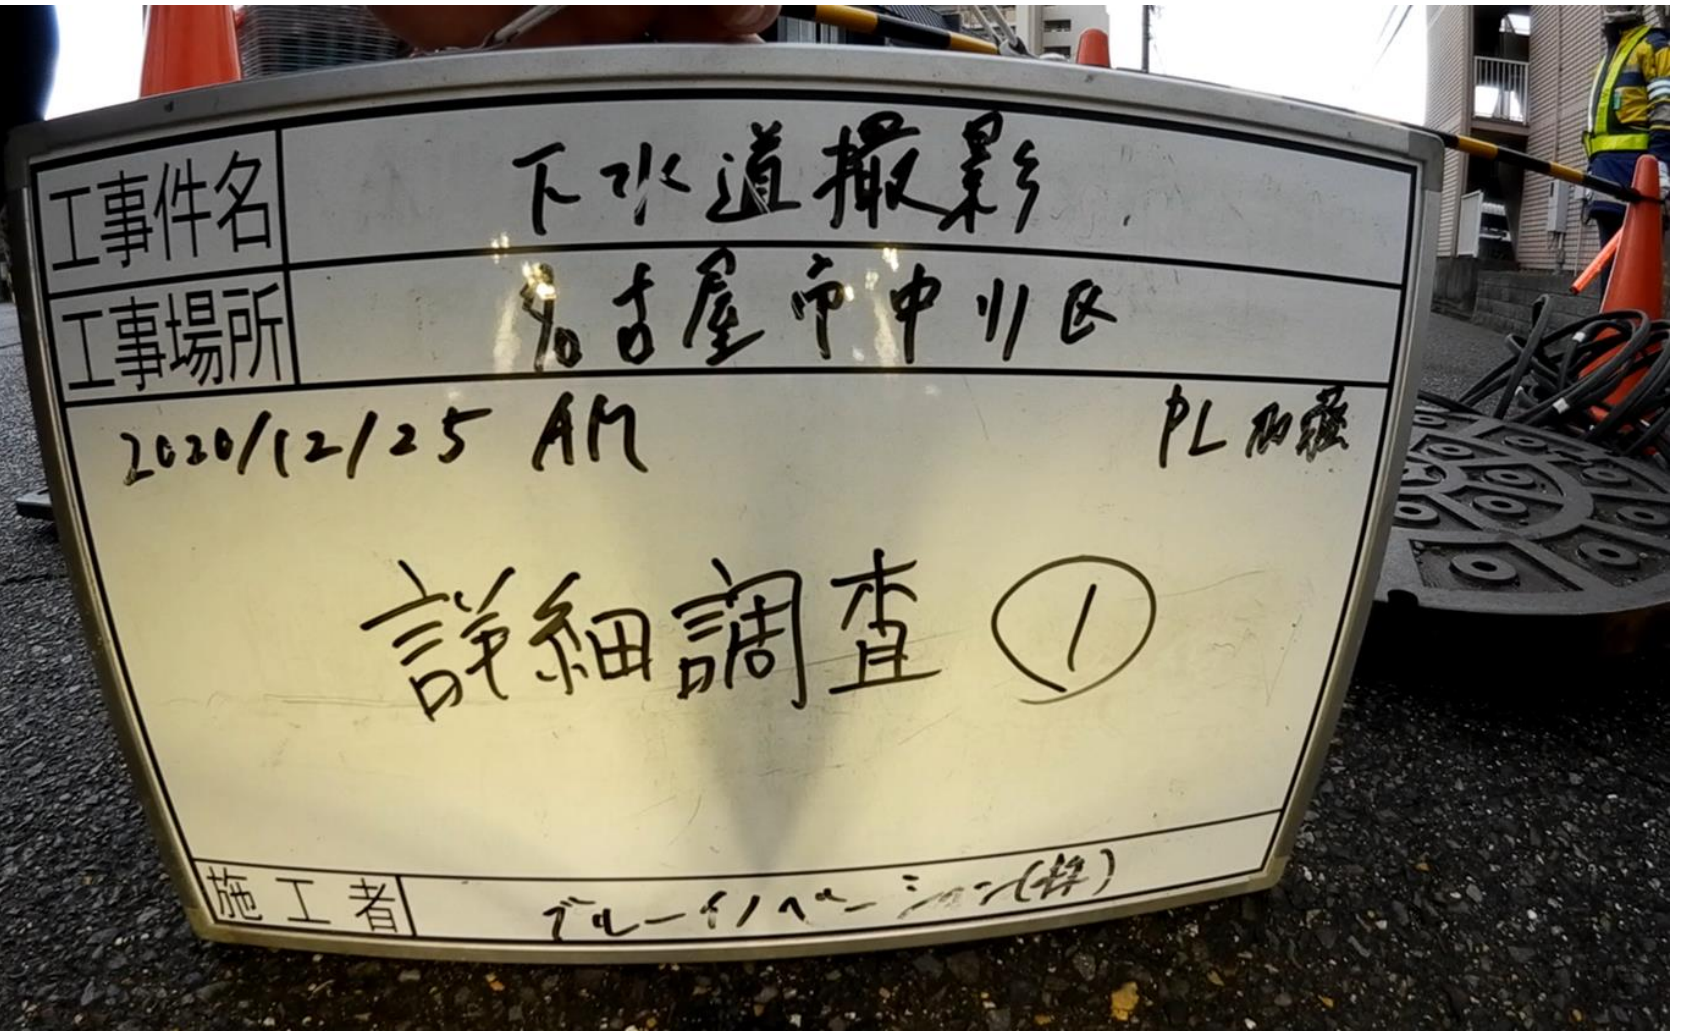 工事件名 下水道撮影
工事場所 名古屋市中川区
2020/12/25 AM PL
詳細調査 ①
施工者 ブルーイノベーション(株)